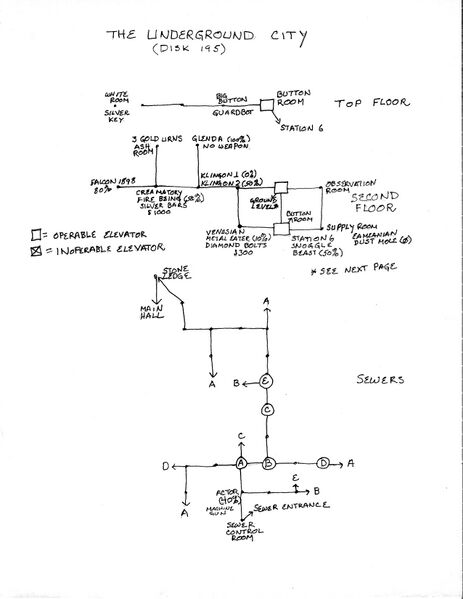 THE UNDERGROUND CITY
(DISK 195)
WHITE ROOM
SILVER KEY
BIG BUTTON
GUARDBOT
BUTTON ROOM
STATION 6
TOP FLOOR
3 GOLD URNS
ASH ROOM
GLENDA (100%)
NO WEAPON
FALCON 1898
80%
CREAMATORY
FIRE BEING (55%)
SILVER BARS
$1000
KLINGON 1 (0%)
KLINGON 2 (50%)
GROUND LEVEL
OBSERVATION ROOM
SECOND FLOOR
BUTTON ROOM
SUPPLY ROOM
DUST MOLE (0)
VENESIAN
METAL EATER (10%)
DIAMOND BOLTS
$300
STATION 6
SNOGGLE
BEAST (50%)
= OPERABLE ELEVATOR
= INOPERABLE ELEVATOR
* SEE NEXT PAGE
STONE LEDGE
MAIN HALL
A
A
B
E
C
SEWERS
C
D
A
B
D
A
A
ACTOR
(40%)
MACHINE GUN
E
B
SEWER ENTRANCE
SEWER CONTROL ROOM